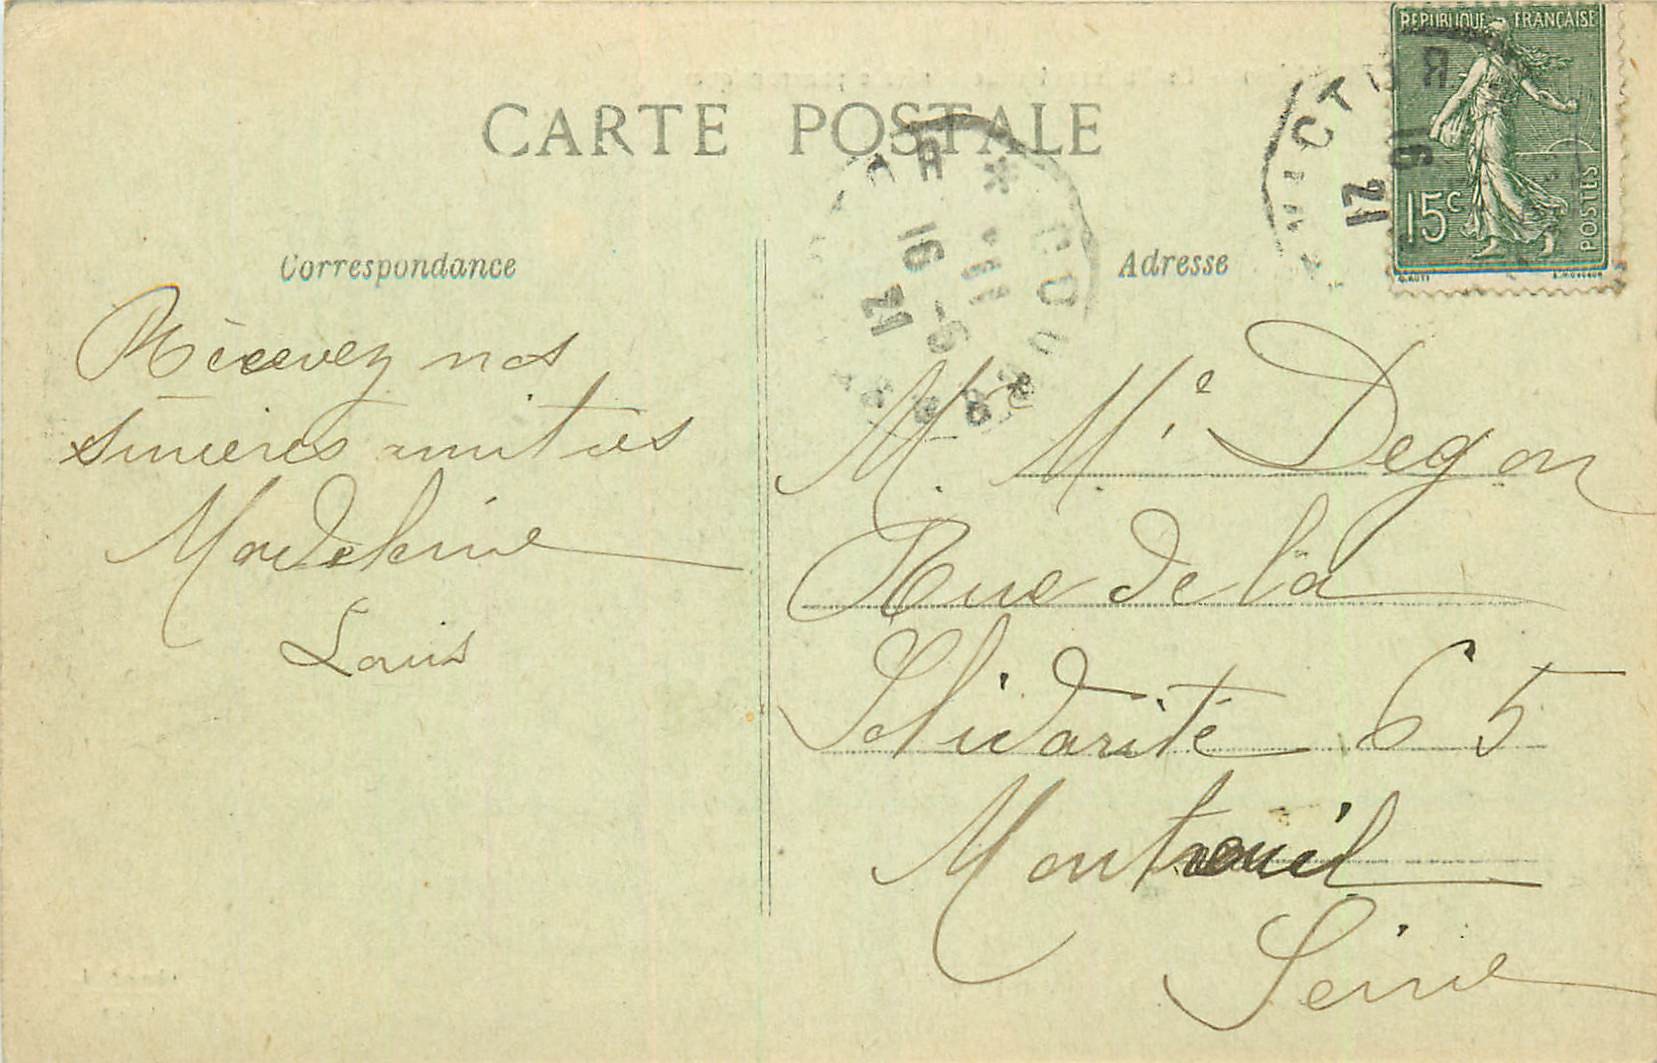 CARTE POSTALE
RÉPUBLIQUE FRANÇAISE
15c
POSTES
Correspondance
Adresse
Recevez nos
sincères amitiés
Madeleine
Louis
M. Me Degon
Rue de la
Solidarité 65
Montreuil
Seine